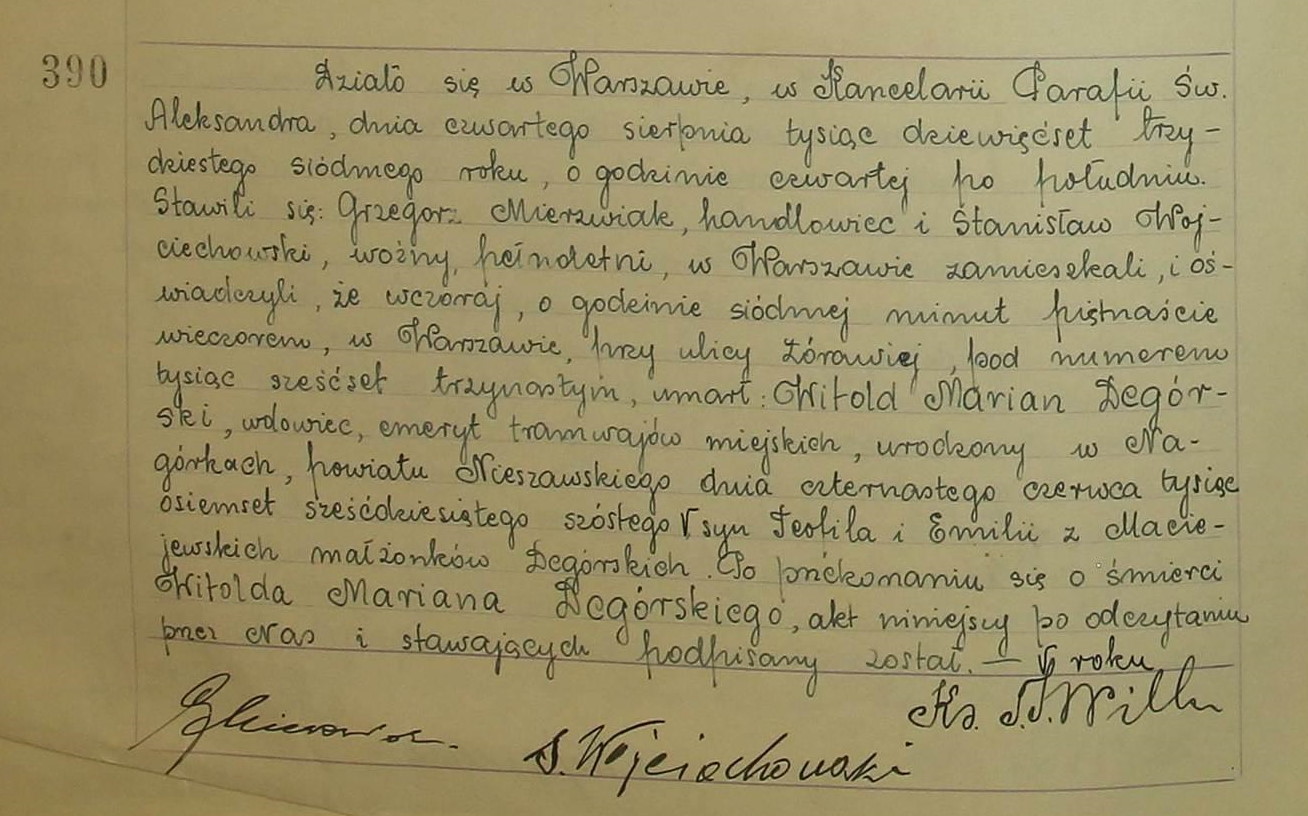 390
Działo się w Warszawie, w Kancelarii Parafii Św.
Aleksandra, dnia czwartego sierpnia tysiąc dziewięćset trzy-
dziestego siódmego roku, o godzinie czwartej po południu.
Stawili się: Grzegorz Mierzwiak, handlowiec i Stanisław Woj-
ciechowski, woźny, pełnoletni, w Warszawie zamieszkali, i oś-
wiadczyli, że wczoraj, o godzinie siódmej minut piętnaście
wieczorem, w Warszawie, przy ulicy Żórawiej, pod numerem
tysiąc sześćset trzynastym, umarł: Witold Marian Degór-
ski, wdowiec, emeryt tramwajów miejskich, urodzony w Na-
górkach, powiatu Nieszawskiego dnia czternastego czerwca tysiąc
osiemset sześćdziesiątego szóstego √ syn Teofila i Emilii z Macie-
jewskich małżonków Degórskich. Po przekonaniu się o śmierci
Witolda Mariana Degórskiego, akt niniejszy po odczytaniu
przez Nas i stawających podpisany został. — √ roku
Ks. J. Wilk
S. Wojciechowski